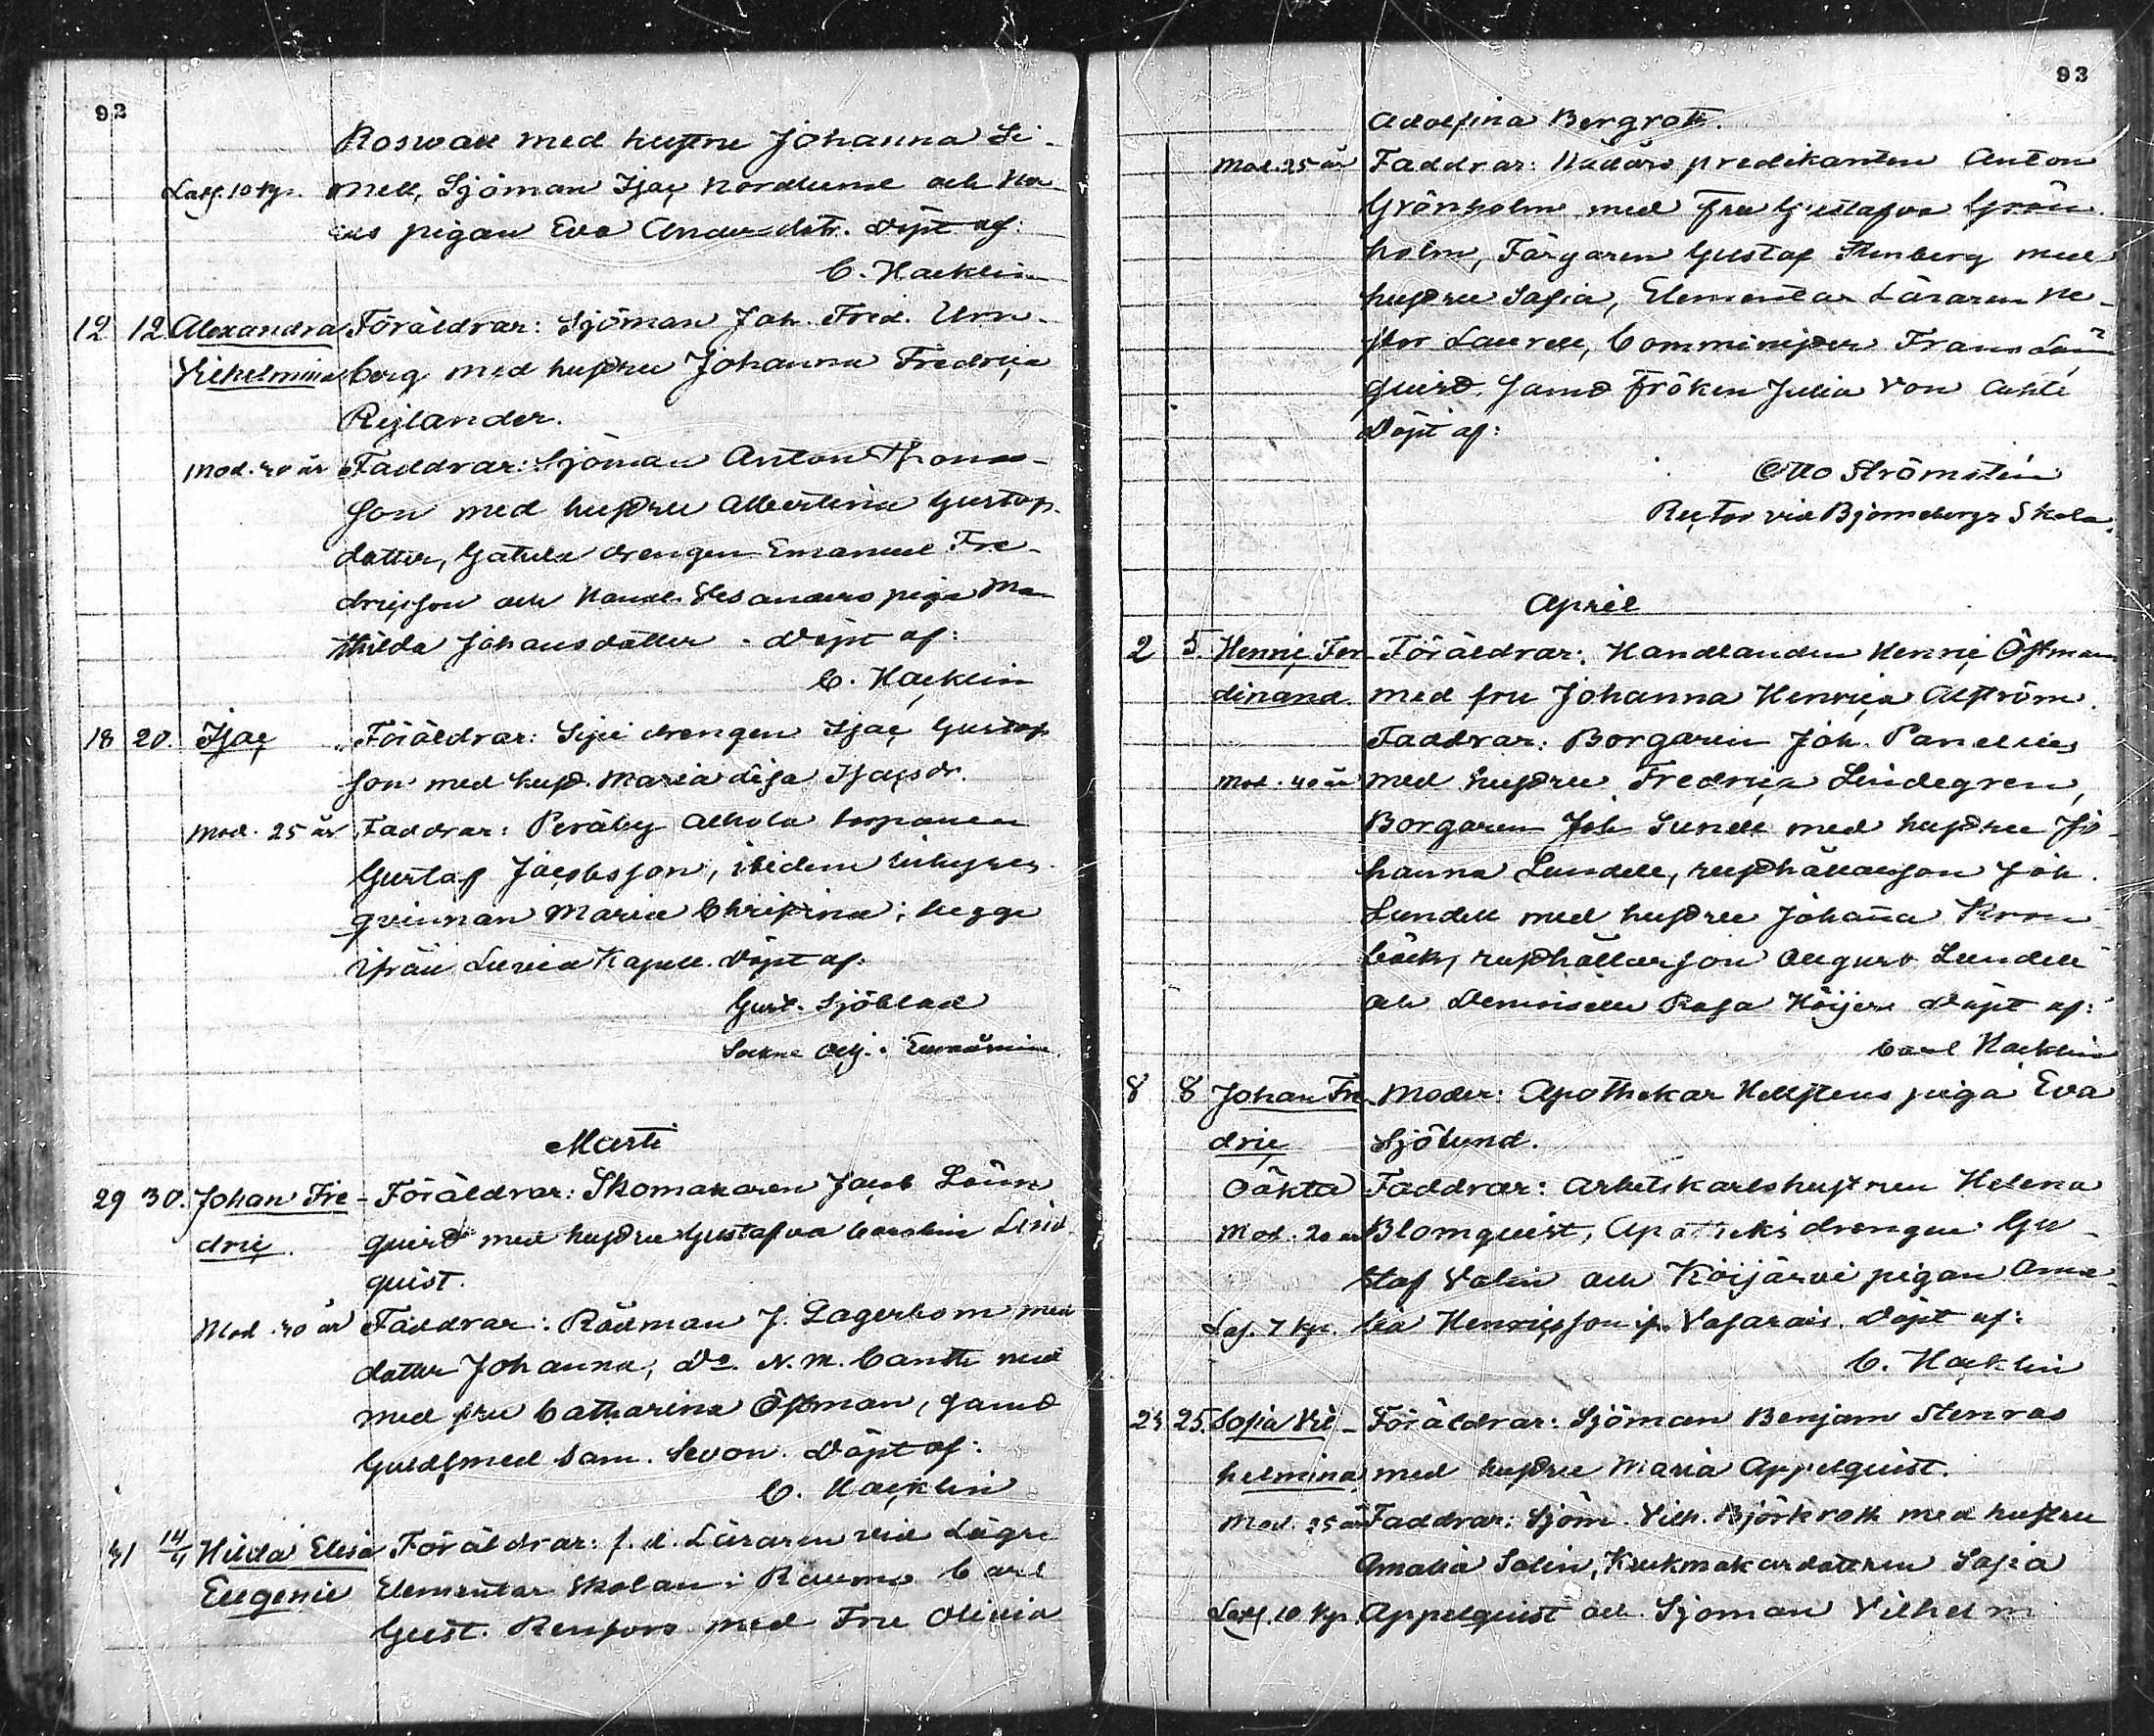 92
Roswall med hustru Johanna Si-
Lösf. 10 kp. mell, Sjöman Isac Nordlund och Ha-
pigan Eva Andersdtr. Döpt af:
C. Hacklin
12 12. Alexandra Föräldrar: Sjöman Joh. Fred. Urn-
Vilhelmina berg med hustru Johanna Fredrica
Rejlander.
Mod. 40 år Faddrar: Sjöman Anton Thomas-
son med hustru Albertina Gustafs-
dotter, drengen Emanuel Fre-
dricsson och Handl. piga Ma-
thilda Johansdotter. Döpt af:
C. Hacklin
18 20. Isac Föräldrar: drengen Isac Gustaf-
son med hust. Maria Lisa Isacsdr.
Mod. 25 år Faddrar: Peräby Alhola torparen
Gustaf Jacobsson, ibidem inhyses
qvinnan Maria Christina; begge
ifrån Luvia Kapell. Döpt af:
Gust. Sjöblad
Sockne Adj. i Euraåminne
Marti
29 30. Johan Fre- Föräldrar: Skomakaren Jacob Lönn-
dric. quist med hustru Gustafva Carolin Lind-
quist.
Mod. 40 år Faddrar: Rådman J. Lagerbom med
dotter Johanna, Do. N. M. Canth med
med fru Catharina Östman, samt
Guldsmed Sam. Sevon. Döpt af:
C. Hacklin
31 14/4 Hilda Elisa Föräldrar: f. d. Läraren vid Lägre
Eugenie Elementar Skolan i Raumo Carl
Gust. Renfors med Fru Olivia
93
Adolfina Bergroth.
Mod. 25 år Faddrar: Nådårs predikanten Anton
Grönholm med fru Gustafva Grön-
holm, Färgaren Gustaf Stenberg med
hustru Sofia, Elementar Läraren Ne-
stor Laurell, Comminister Frans Lönn-
quist, samt Fröken Julia von
Döpt af:
Otto Strömsten
Rector vid Björneborgs Skola.
April
2 5. Henric Fer- Föräldrar: Handlanden Henric Östman
dinand. med fru Johanna Henrica Alström.
Faddrar: Borgaren Joh. Panelius
Mod. 40 år med hustru Fredrica Lindegren,
Borgaren Joh Sundell med hustru Jo-
hanna Lundell, rusthållarson Joh.
Lundell med hustru Johanna Kron-
bäck, rusthållarson August Lundell
och Demoiselle Rosa Höijer. Döpt af:
Carl Hacklin
8 8 Johan Fre- Moder: Apothekar Hellstens piga Eva
dric Sjölund.
Oäkta Faddrar: Arbetskarlshustrun Helena
Mod. 20 år Blomquist, Apotheks drengen Gu-
staf Valin och Köijärvi pigan Ama-
Lösf. 7 kp. lia Henricsson fr. Vasarais. Döpt af:
C. Hacklin
23 25. Sofia Vil- Föräldrar: Sjöman Benjam Stenroos
helmina, med hustru Maria Appelquist.
Mod. 35 år Faddrar: Sjöm. Vilh. Björkroth med hustru
Amalia Salin, Krukmakardottren Sofia
Lösf. 10 kp. Appelquist och Sjöman Vilhelm